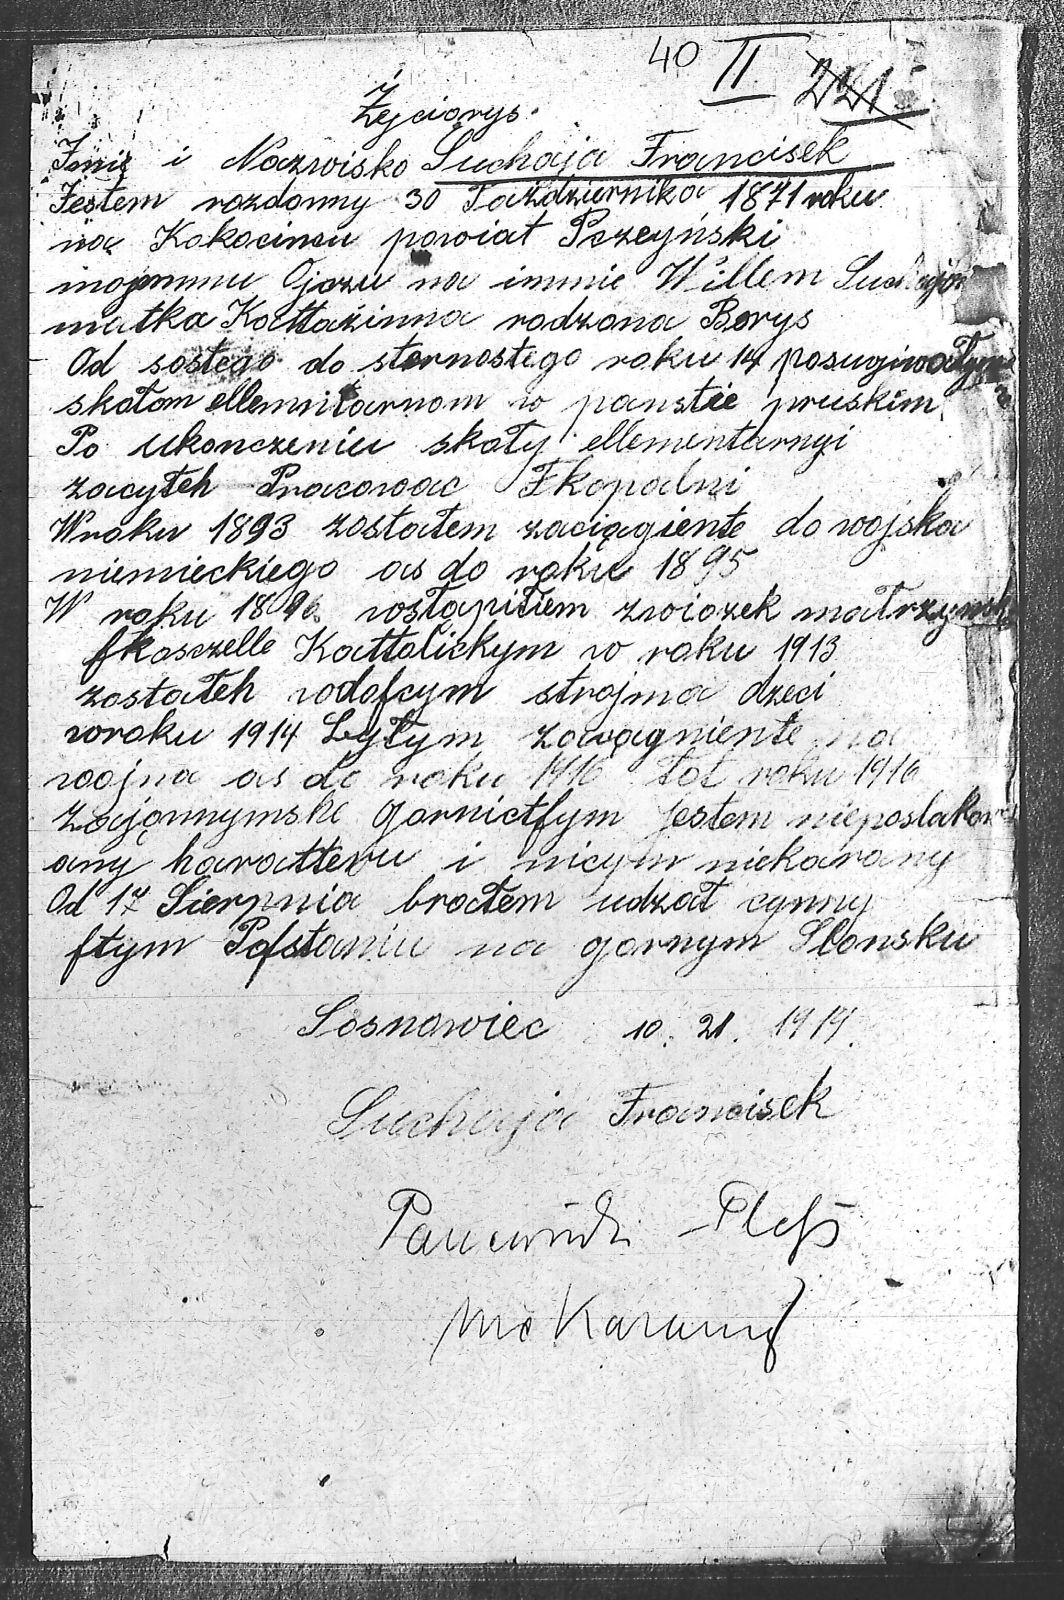 40 II 221
Żejciorys.
Jmie i Nazwisko Suchaja Francisek
Jestem rozdonny 30 Pażdziernika 1871 roku
na Kokocincu powiat Pszeyński
mojemmu Ojczu na immie Willem Suchaja
matka Kattażinna rodzona Borys
Od sostego do sternostego roku 14 posugiwałym
skołom ellemntarnom w panstie pruskim
Po ukonczeniu skoły ellementarnyi
zacyłeh Pracowac Fkopalni
W roku 1893 zostałem zaciągiente do wojska
niemieckiego as do roku 1895
W roku 1896 wostąpiłem zwiozek małrzyn
fkosczelle Kattolickym w roku 1913
zostałeh wdofcym strojma dzeci
wroku 1914 Lyłym zawągniente na
wojna as do roku 1916 Lot roku 1916
Zajonnymske gornictfym Jestem nieposlakow
any haratteru i nicym niekarany
Od 17 Sierpnia brałem udzał cynny
ftym Pofstaniu na gornym Slonsku
Sosnowiec 10. 21. 1919.
Suchaja Francisek
Panewniki Pleß
nie Karany